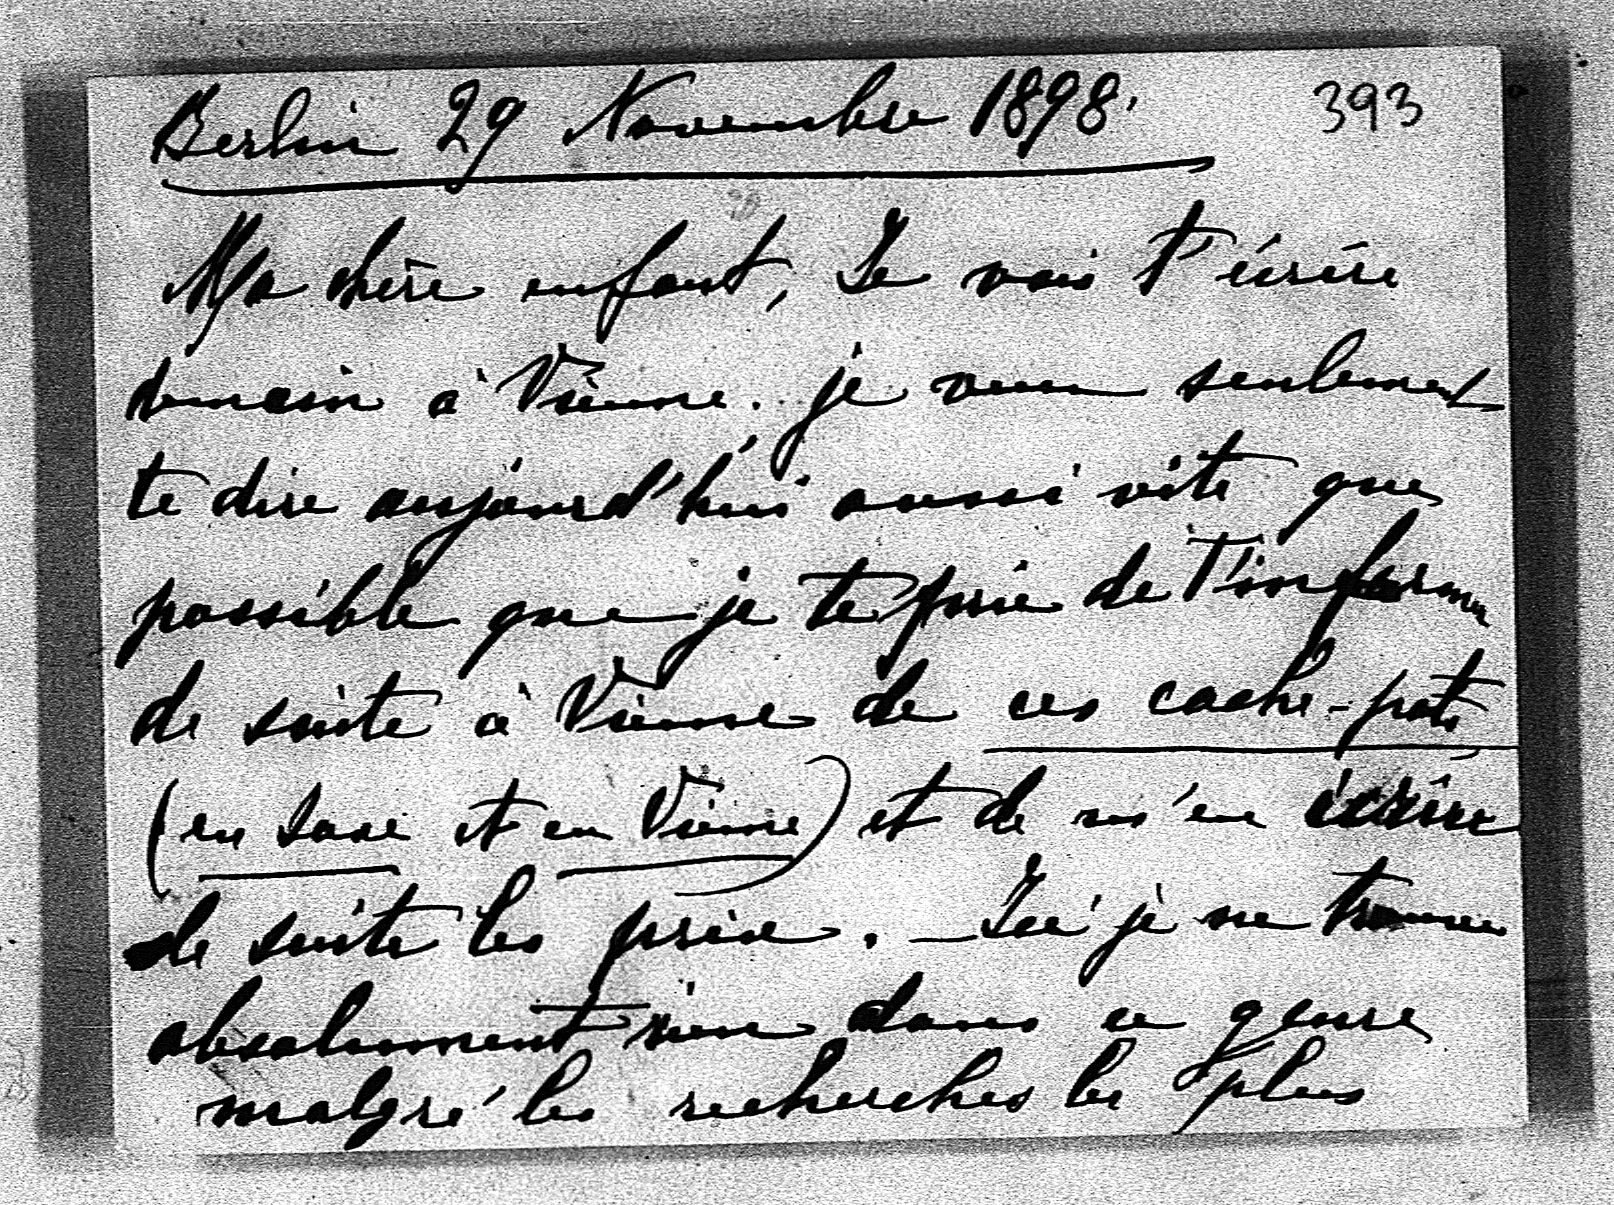 Berlin 29 Novembre 1898. 393
Ma chère enfant, Je vais t'écrire
demain à Vienne. je veux seulement
te dire aujourd'hui aussi vite que
possible que je te prie de t'informer
de suite à Vienne de ces cache-pots
(en Saxe et en Vienne) et de m'en écrire
de suite les prix. — Ici je ne trouve
absolument rien dans ce genre
malgré les recherches les plus